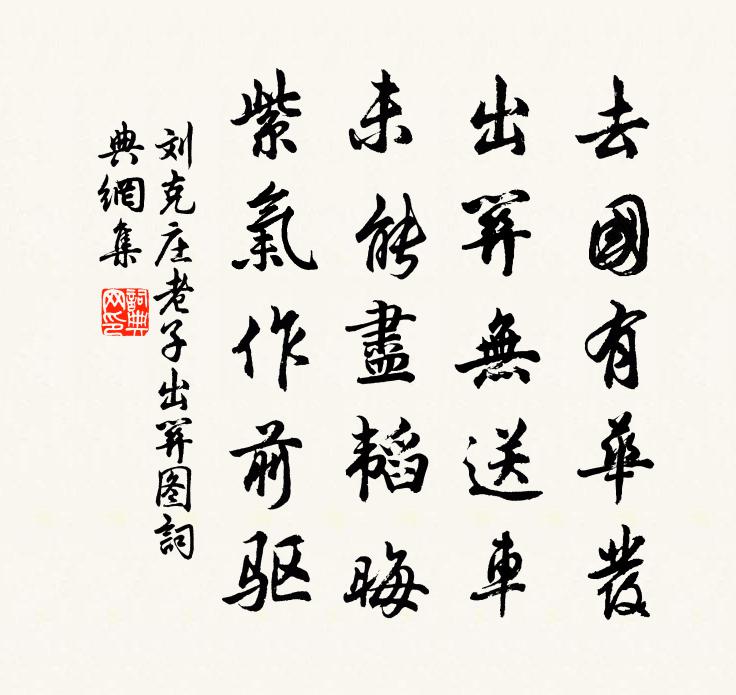 去國有華发
出関無送車
未能盡韜晦
紫氣作前驱
刘克庄老子出関图詞
典網集
詞典网印